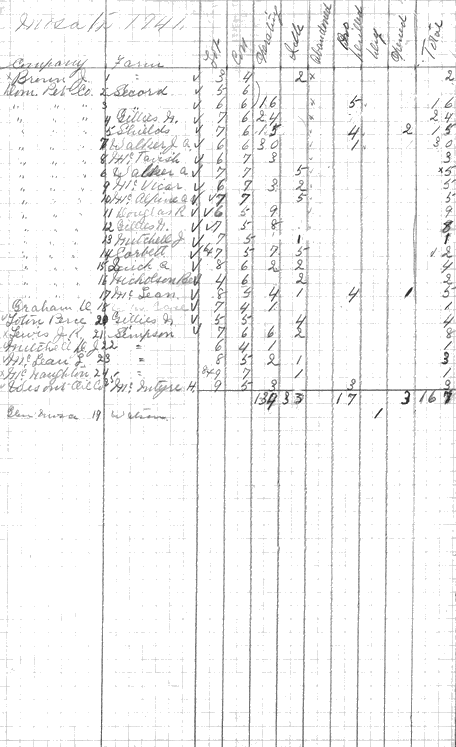 Mosa Tp 1941
Company Farm Lot Con Operating Idle Abandoned Drilled Total
Brown J. 1 " 30 4 2 2
Com. Pet. Co. 2 Secord 5 6
" " " 3 6 6 16 5 16
" " " 4 Gillies N. 7 6 24 24
" " " 5 Shields 7 6 15 4 2 15
" " " 7 Walker J. A. 6 6 30 1 30
" " " 8 McTavish 6 7 3 3
" " " 6 Walker A. 7 7 5 5
" " " 9 McVicar 6 7 3 2 5
" " " 10 McAlpine 7 7 5 5
" " " 11 Douglas R. 6 5 9 9
" " " 12 Gillies N. 7 5 8 8
" " " 13 Mitchell J. 7 5 1 1
" " " 14 Corbett 7 5 7 5 2
" " " 15 Quick A. 8 6 2 2 4
" " " 16 Nicholson 4 6 2 2
" " " 17 McLean 8 5 4 1 4 1 5
Graham 18 7 4 1 1
20 Gillies N. 5 5 4 4
Lewis J. R. 21 Simpson 7 6 6 2 8
22 " 6 4 1 1
McLean 23 " 8 5 2 1 3
McNaughton 24 " 9 7 1 1
McIntyre H. 9 5 3 3 3
134 33 17 3 167
Mosa 19 Watson 1